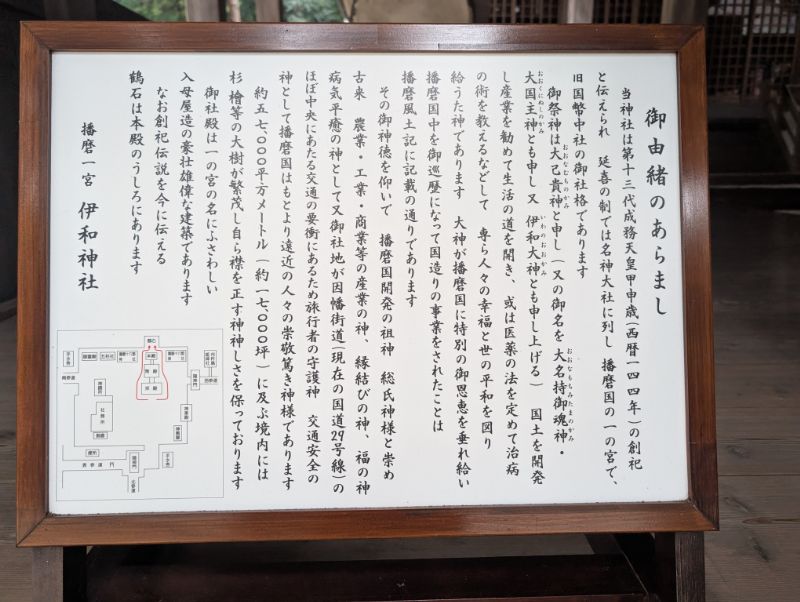 御由緒のあらまし
当神社は第十三代成務天皇甲申歳(西暦一四四年)の創祀
と伝えられ 延喜の制では名神大社に列し 播磨国の一の宮で、
旧国幣中社の御社格であります
御祭神は大己貴神と申し(又の御名を大名持御魂神・
おおなむちのかみ
おおなもちみたまのかみ
大国主神とも申し又 伊和大神とも申し上げる) 国土を開発
おおくにぬしのかみ
いわのおおかみ
し産業を勧めて生活の道を開き、或は医薬の法を定めて治病
の術を教えるなどして 専ら人々の幸福と世の平和を図り
給うた神であります 大神が播磨国に特別の御恩恵を垂れ給い
播磨国中を御巡歴になって国造りの事業をされたことは
播磨風土記に記載の通りであります
その御神徳を仰いで 播磨国開発の祖神 総氏神様と崇め
古来 農業・工業・商業等の産業の神、縁結びの神、福の神
病気平癒の神として又御社地が因幡街道(現在の国道29号線)の
ほぼ中央にあたる交通の要衝にあるため旅行者の守護神 交通安全の
神として播磨国はもとより遠近の人々の崇敬篤き神様であります
約五七,000平方メートル(約一七,000坪)に及ぶ境内には
杉 檜等の大樹が繁茂し自ら襟を正す神神しさを保っております
御社殿は一の宮の名にふさわしい
入母屋造の豪壮雄偉な建築であります
なお創祀伝説を今に伝える
鶴石は本殿のうしろにあります
播磨一宮 伊和神社
鶴石
本殿
幣殿
拝殿
社務所
表参道